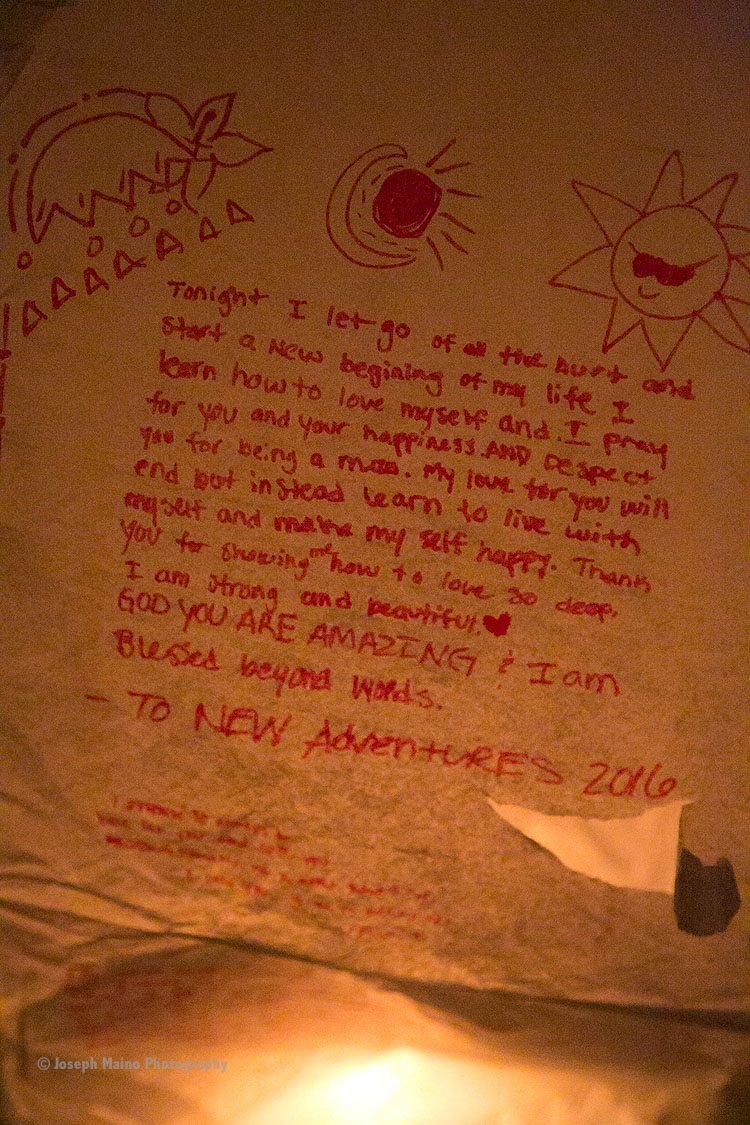 Tonight I let go of all the hurt and
start a New begining of my life I
learn how to love myself and. I pray
for you and your happiness. AND respect
you for being a man. My love for you will
end but instead learn to live with
myself and make my self happy. Thank
you for showing me how to love so deep.
I am strong and beautiful.
GOD YOU ARE AMAZING & I am
Blessed beyond words.
- TO NEW AdventURES 2016
© Joseph Maino Photography